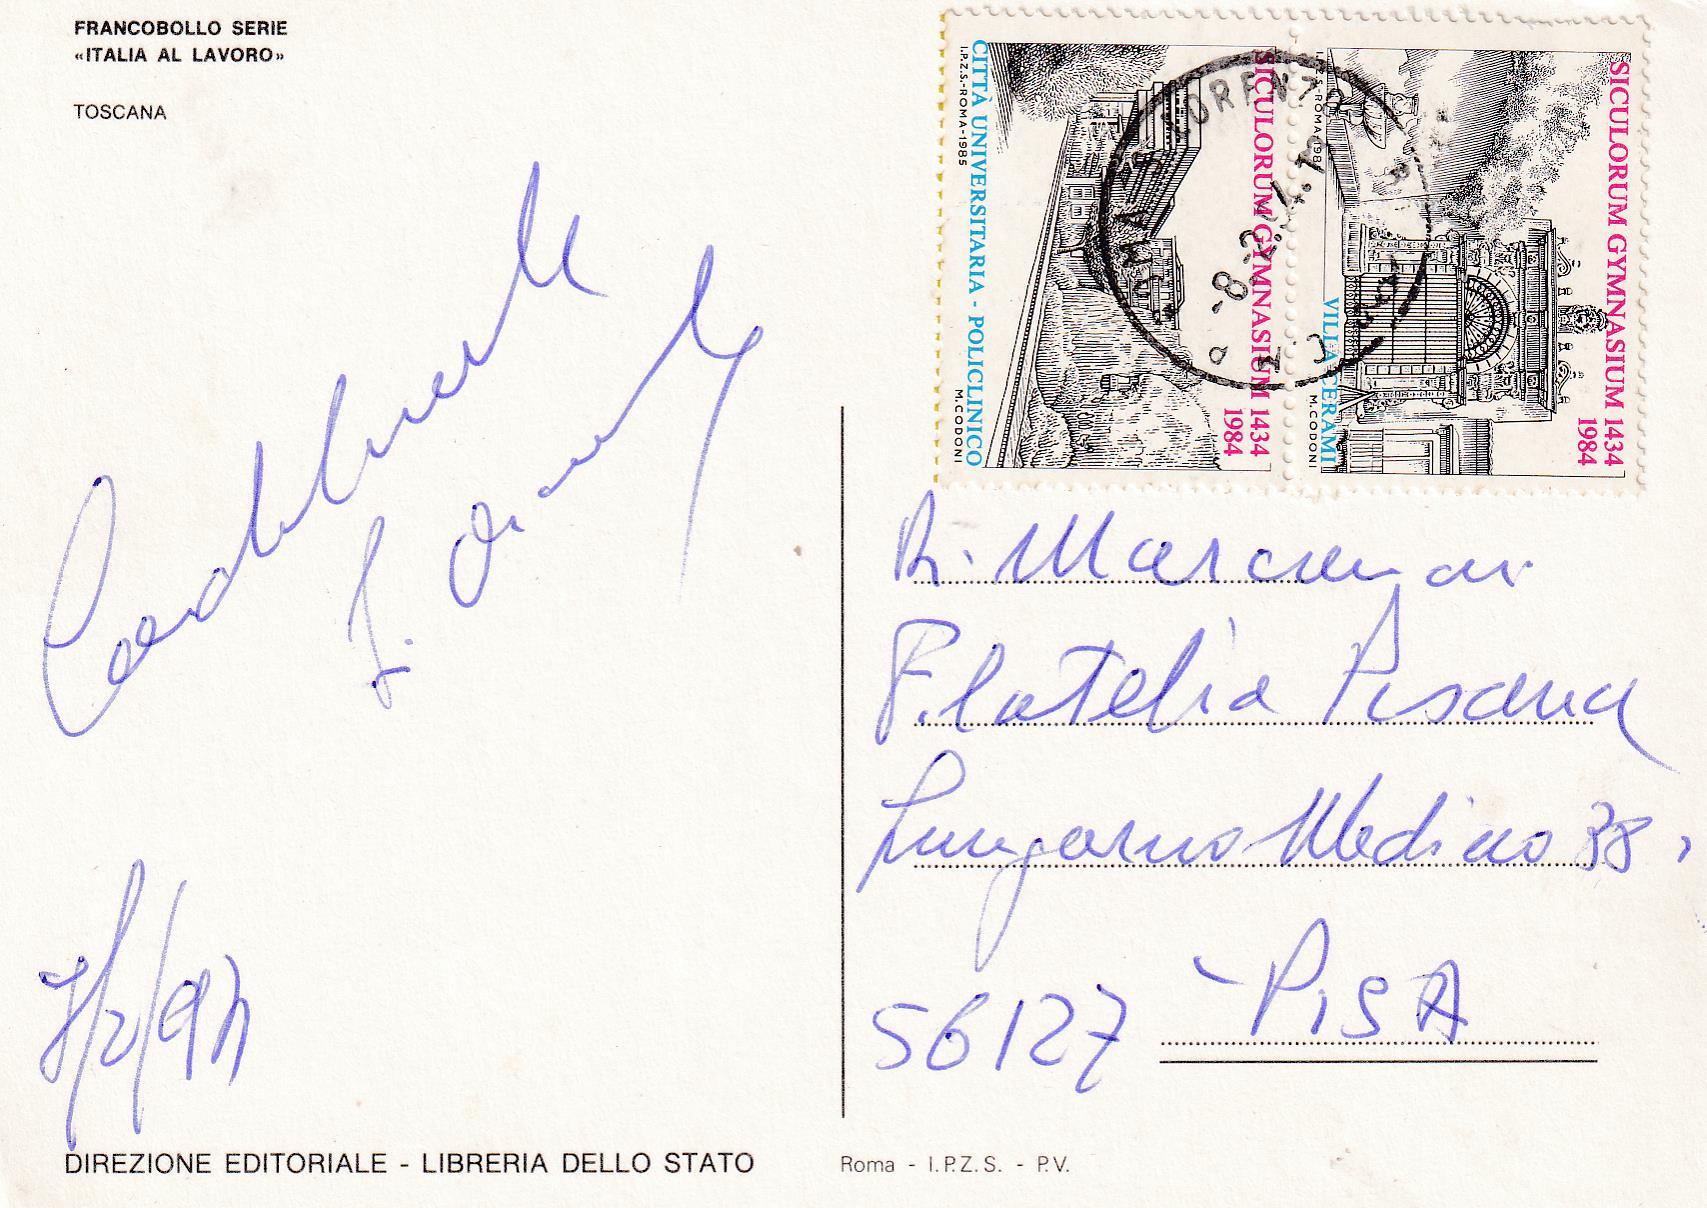 FRANCOBOLLO SERIE
«ITALIA AL LAVORO»
TOSCANA
Cordialmente
7/2/94
DIREZIONE EDITORIALE - LIBRERIA DELLO STATO
SICULORUM GYMNASIUM 1434
1984
CITTÀ UNIVERSITARIA - POLICLINICO
I.P.Z.S.-ROMA-1985
M.CODONI
SICULORUM GYMNASIUM 1434
1984
VILLA CERAMI
M.CODONI
-8.2.94.18
Filatelia Pisana
Lungarno Mediceo 38
56127 - PISA
Roma - I.P.Z.S. - P.V.